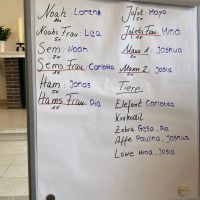 Noah: Lorena
11x
Noahs Frau: Lea
5x
Sem: Noah
2x
Sems Frau: Carlotta
Ham: Jonas
5x
Hams Frau: Pia
Jafet: Maya
5x
Jafets Frau: Mina
3x
Mann 1: Joshua
2x
Mann 2: Josia
2x
Tiere:
Elefant Carlotta
Krokodil
Zebra Gesa, Pia
Affe Paulina, Joshua
Löwe Mina, Josia